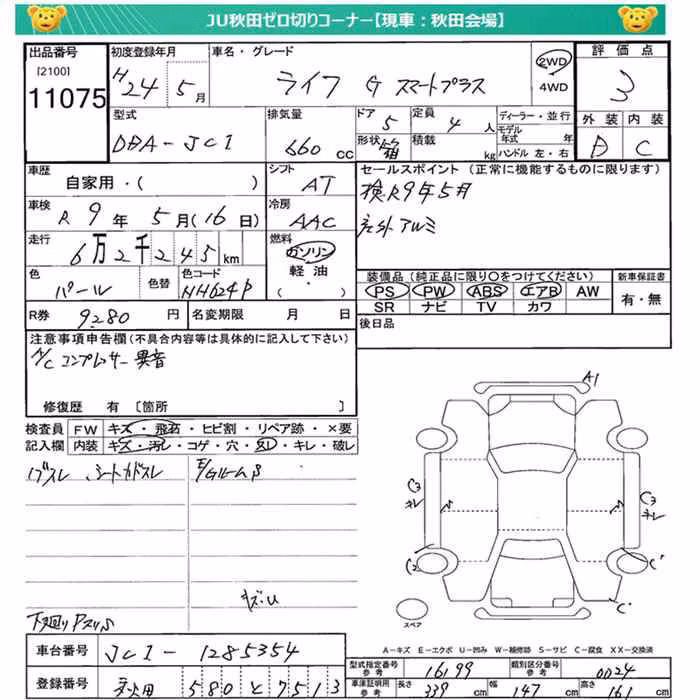 JU秋田ゼロ切りコーナー【現車：秋田会場】
出品番号
[2100]
11075
初度登録年月
H24 5月
車名・グレード
ライフ G スマートプラス
2WD
4WD
評価点
3
外装 内装
D C
型式
DBA-JC1
排気量
660 cc
ドア
5
定員
4 人
形状
箱
積載
kg
ディーラー・並行
モデル年式 年
ハンドル 左・右
車歴
自家用・( )
シフト
AT
セールスポイント(正常に機能するものに限ります)
検R9年5月
社外アルミ
車検
R 9年 5月(16日)
冷房
AAC
走行
6万2千245km
燃料
ガソリン
軽油
・( )
色
パール
色替
色コード
NH624P
装備品(純正品に限り〇をつけてください)
PS PW ABS エアB AW
SR ナビ TV カワ
新車保証書
有・無
R券
9280 円
名変期限 月 日
後日品
注意事項申告欄(不具合内容等は具体的に記入して下さい)
A/C コンプレッサー 異音
修復歴 有 〔箇所 〕
検査員記入欄
FW キズ・飛石・ヒビ割・リペア跡・×要
内装 キズ・汚レ・コゲ・穴・スレ・キレ・破レ
シートカドスレ
キズ・U
A1
C3
C3
C2
C'
C'
スペア
A-キズ E-エクボ U-凹み W-補修跡 S-サビ C-腐食 XX-交換済
車台番号
JC1-1285354
登録番号
秋田 580 と 7513
型式指定番号 参考
16199
類別区分番号 参考
0024
車庫証明用 参考
長さ 339 cm
幅 147 cm
高さ 161 cm